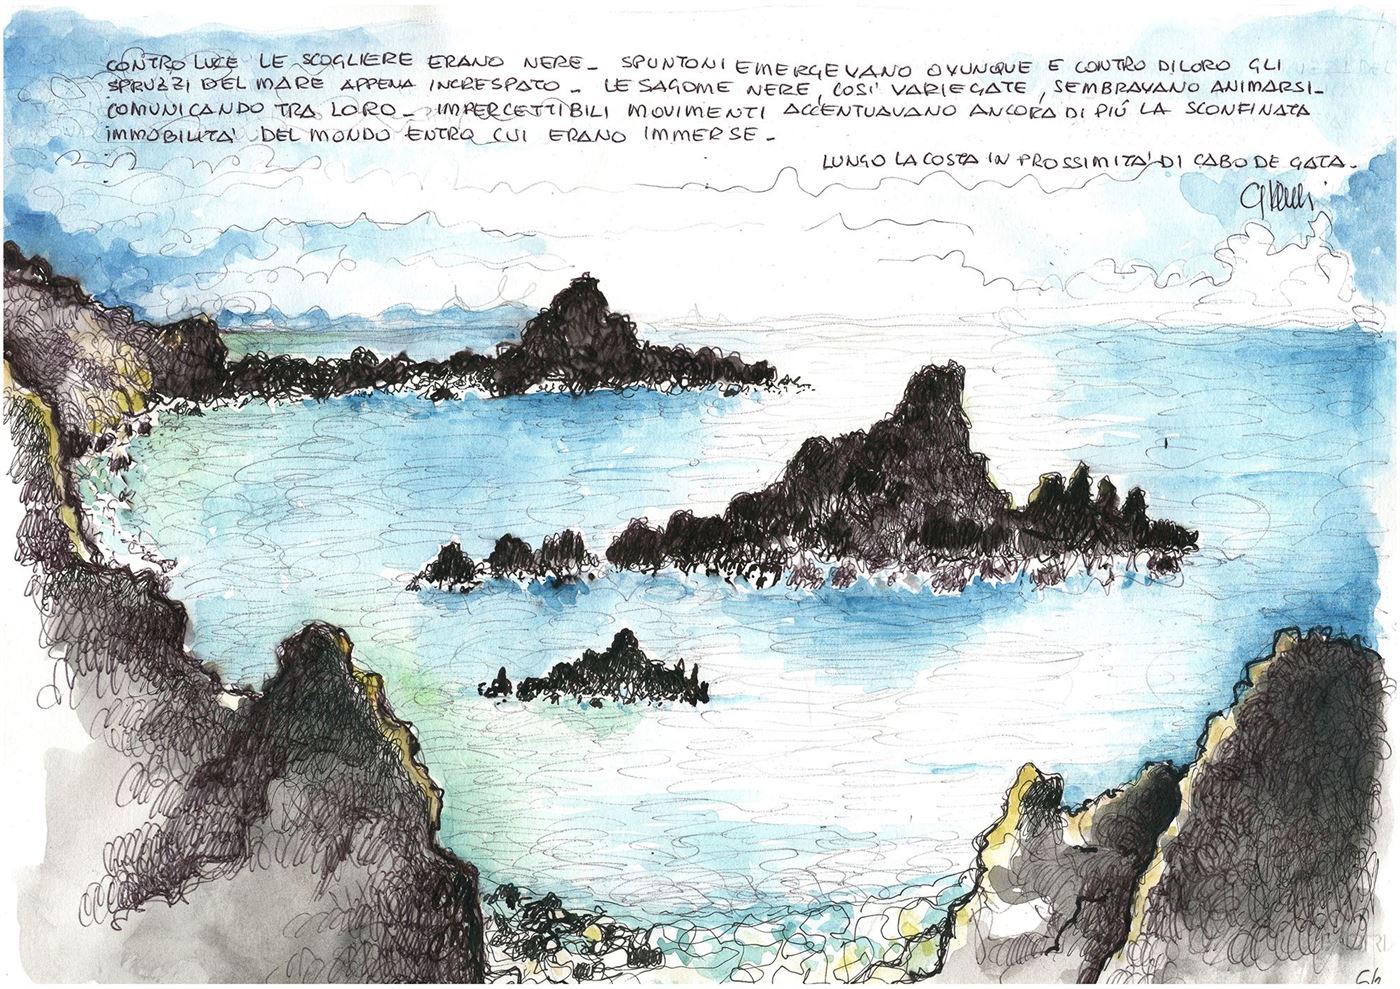 CONTRO LUCE LE SCOGLIERE ERANO NERE_ SPUNTONI EMERGEVANO OVUNQUE E CONTRO DI LORO GLI
SPRUZZI DEL MARE APPENA INCRESPATO_ LE SAGOME NERE, COSI' VARIEGATE, SEMBRAVANO ANIMARSI_
COMUNICANDO TRA LORO_ IMPERCETTIBILI MOVIMENTI ACCENTUAVANO ANCORA DI PIÚ LA SCONFINATA
IMMOBILITA' DEL MONDO ENTRO CUI ERANO IMMERSE_
LUNGO LA COSTA IN PROSSIMITA' DI CABO DE GATA_